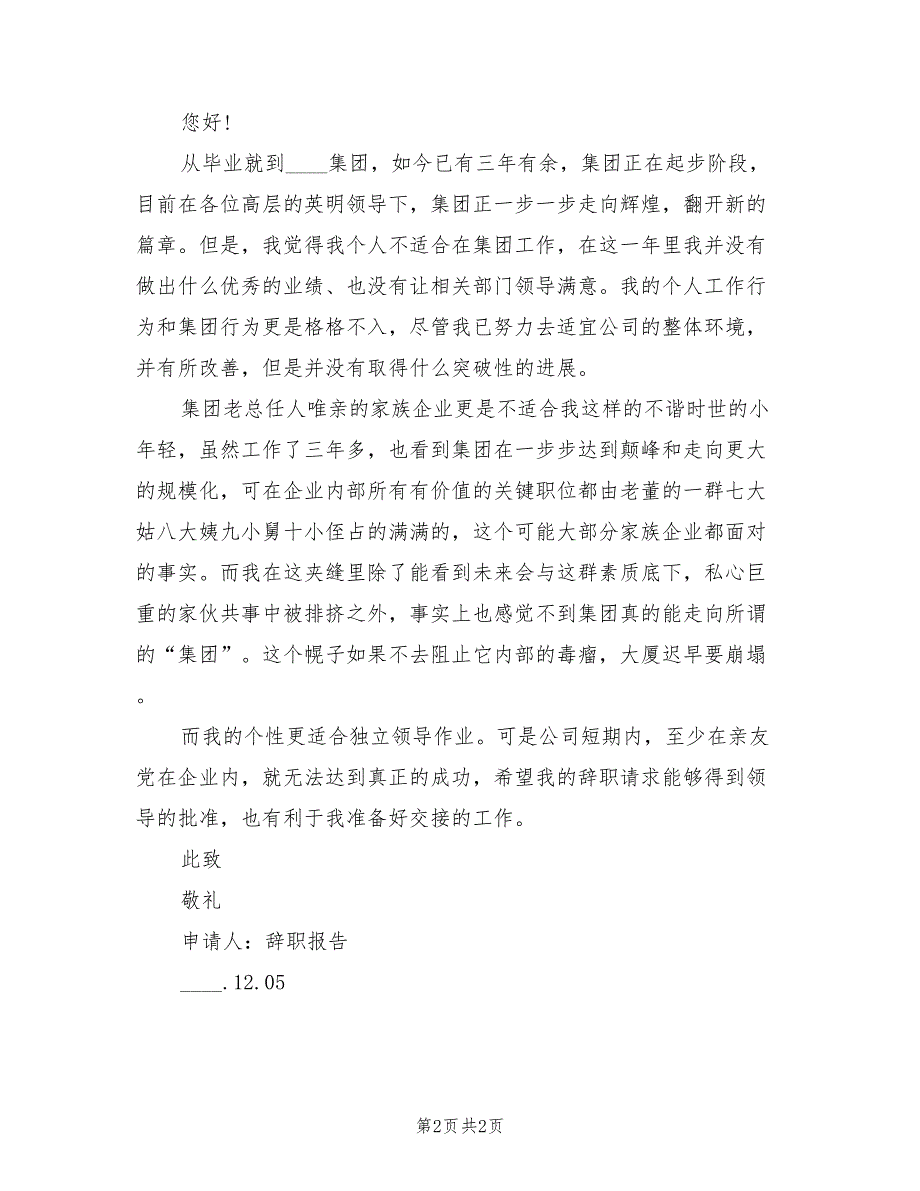 您好!
从毕业就到____集团，如今已有三年有余，集团正在起步阶段，
目前在各位高层的英明领导下，集团正一步一步走向辉煌，翻开新的
篇章。但是，我觉得我个人不适合在集团工作，在这一年里我并没有
做出什么优秀的业绩、也没有让相关部门领导满意。我的个人工作行
为和集团行为更是格格不入，尽管我已努力去适宜公司的整体环境，
并有所改善，但是并没有取得什么突破性的进展。
集团老总任人唯亲的家族企业更是不适合我这样的不谐时世的小
年轻，虽然工作了三年多，也看到集团在一步步达到颠峰和走向更大
的规模化，可在企业内部所有有价值的关键职位都由老董的一群七大
姑八大姨九小舅十小侄占的满满的，这个可能大部分家族企业都面对
的事实。而我在这夹缝里除了能看到未来会与这群素质底下，私心巨
重的家伙共事中被排挤之外，事实上也感觉不到集团真的能走向所谓
的“集团”。这个幌子如果不去阻止它内部的毒瘤，大厦迟早要崩塌
。
而我的个性更适合独立领导作业。可是公司短期内，至少在亲友
党在企业内，就无法达到真正的成功，希望我的辞职请求能够得到领
导的批准，也有利于我准备好交接的工作。
此致
敬礼
申请人：辞职报告
____.12.05
第2页 共2页